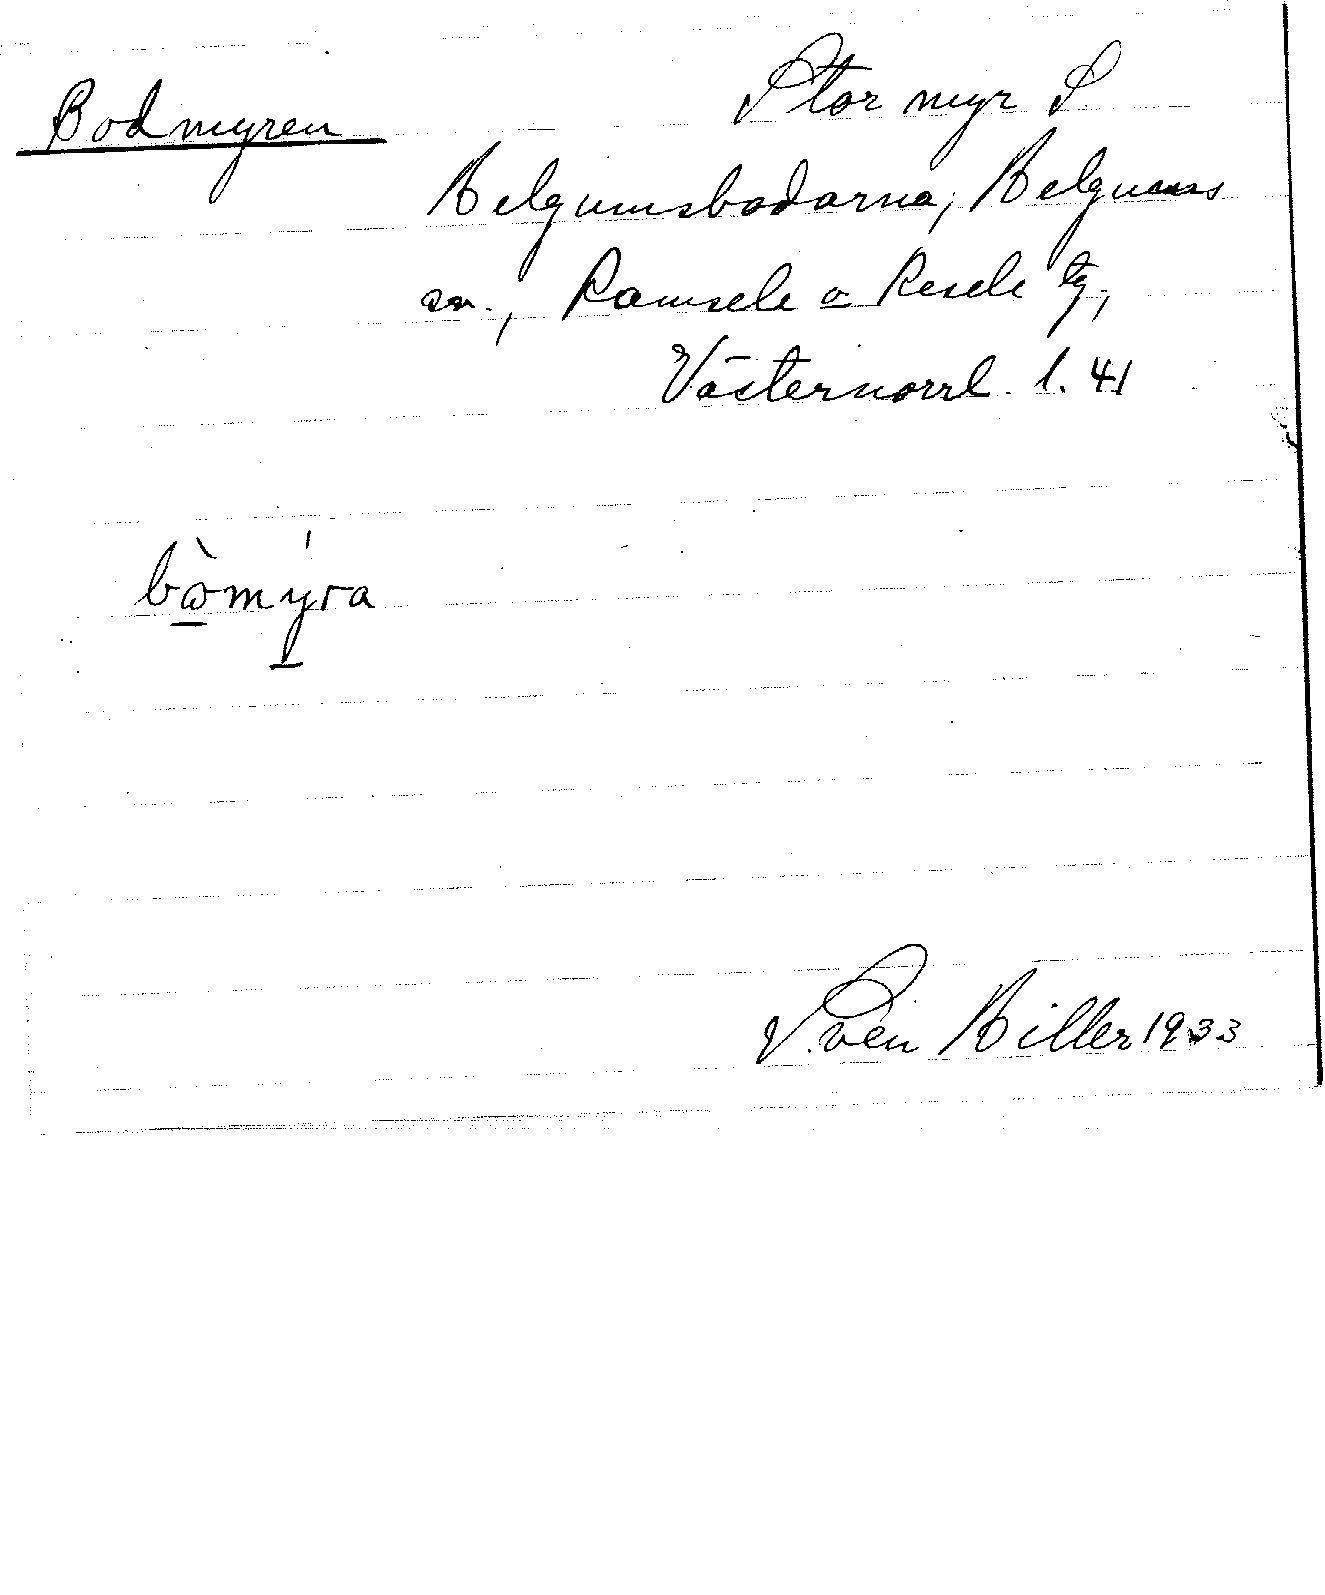 Bodmyren
Stor myr S.
Helgumsbodarna, Helgums
sn., Ramsele o Resele tg,
Västernorrl. l. 41
bòmýra
Sven Hiller 1933